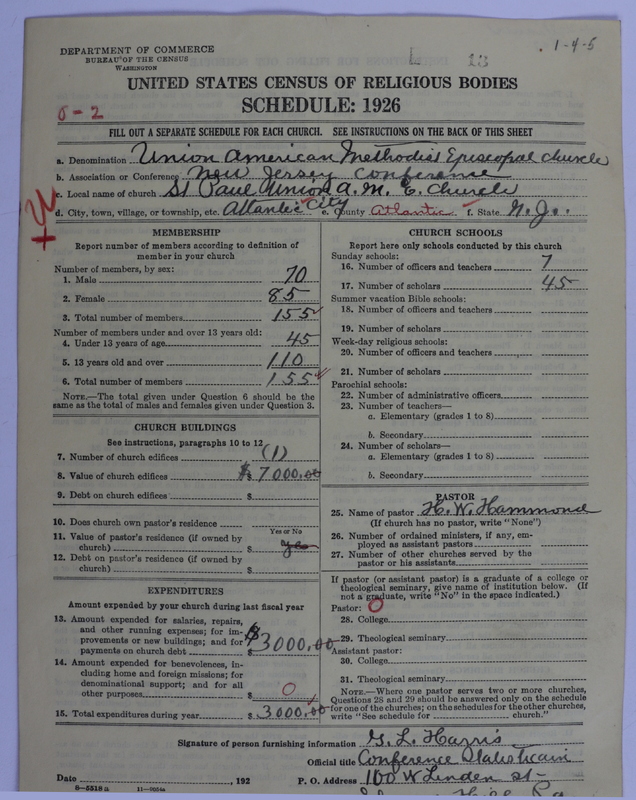 1-4-5
L 13
DEPARTMENT OF COMMERCE
BUREAU OF THE CENSUS
WASHINGTON
UNITED STATES CENSUS OF RELIGIOUS BODIES
SCHEDULE: 1926
6-2
FILL OUT A SEPARATE SCHEDULE FOR EACH CHURCH. SEE INSTRUCTIONS ON THE BACK OF THIS SHEET
a. Denomination Union American Methodist Episcopal church
b. Association or Conference New Jersey Conference
c. Local name of church St Paul Union A. M. E. Church
d. City, town, village, or township, etc. Atlantic City e. County Atlantic f. State N. J.
MEMBERSHIP
Report number of members according to definition of
member in your church
Number of members, by sex:
1. Male 70
2. Female 85
3. Total number of members 155
Number of members under and over 13 years old:
4. Under 13 years of age 45
5. 13 years old and over 110
6. Total number of members 155
NOTE.—The total given under Question 6 should be the
same as the total of males and females given under Question 3.
CHURCH BUILDINGS
See instructions, paragraphs 10 to 12
7. Number of church edifices (1)
8. Value of church edifices $ 7000.00
9. Debt on church edifices $
10. Does church own pastor's residence
Yes or No
11. Value of pastor's residence (if owned by
church) $ yes
12. Debt on pastor's residence (if owned by
church) $
EXPENDITURES
Amount expended by your church during last fiscal year
13. Amount expended for salaries, repairs,
and other running expenses; for im-
provements or new buildings; and for
payments on church debt $ 3000.00
14. Amount expended for benevolences, in-
cluding home and foreign missions; for
denominational support; and for all
other purposes $ 0
15. Total expenditures during year $ 3000.00
CHURCH SCHOOLS
Report here only schools conducted by this church
Sunday schools:
16. Number of officers and teachers 7
17. Number of scholars 45
Summer vacation Bible schools:
18. Number of officers and teachers
19. Number of scholars
Week-day religious schools:
20. Number of officers and teachers
21. Number of scholars
Parochial schools:
22. Number of administrative officers
23. Number of teachers—
a. Elementary (grades 1 to 8)
b. Secondary
24. Number of scholars—
a. Elementary (grades 1 to 8)
b. Secondary
PASTOR
25. Name of pastor H. W. Hammond
(If church has no pastor, write "None")
26. Number of ordained ministers, if any, em-
ployed as assistant pastors
27. Number of other churches served by the
pastor or his assistants
If pastor (or assistant pastor) is a graduate of a college or
theological seminary, give name of institution below. (If
not a graduate, write "No" in the space indicated.)
Pastor: 0
28. College
29. Theological seminary
Assistant pastor:
30. College
31. Theological seminary
NOTE.—Where one pastor serves two or more churches,
Questions 28 and 29 should be answered only on the schedule
for one of the churches; on the schedules for the other churches,
write "See schedule for church."
Signature of person furnishing information G. L. Harris
Official title Conference Statistician
Date , 192 P. O. Address 100 W Linden St-
8-5518 a 11-9054a